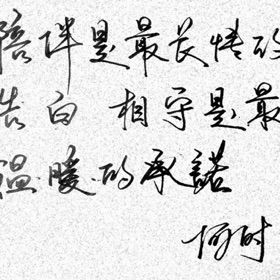 陪伴是最长情的
告白 相守是最
温暖的承諾
何时